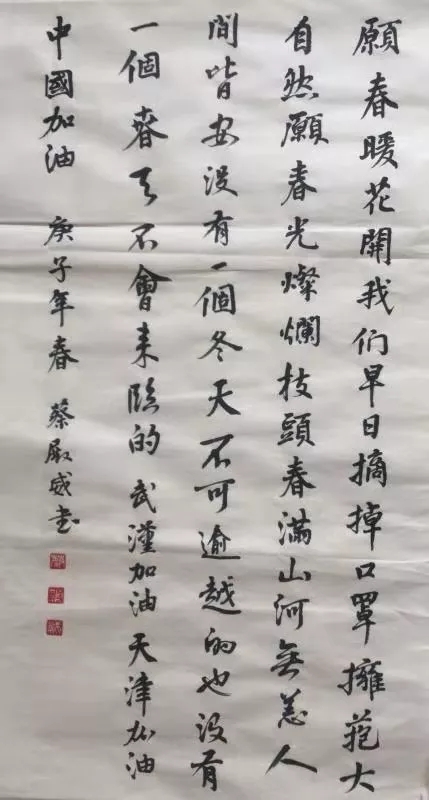 願春暖花開我们早日摘掉口罩擁菢大
自然願春光燦爛枝頭春滿山河無恙人
間皆安没有一個冬天不可逾越的也没有
一個春天不會来臨的武漢加油天津加油
中國加油 庚子年春 蔡殿威书